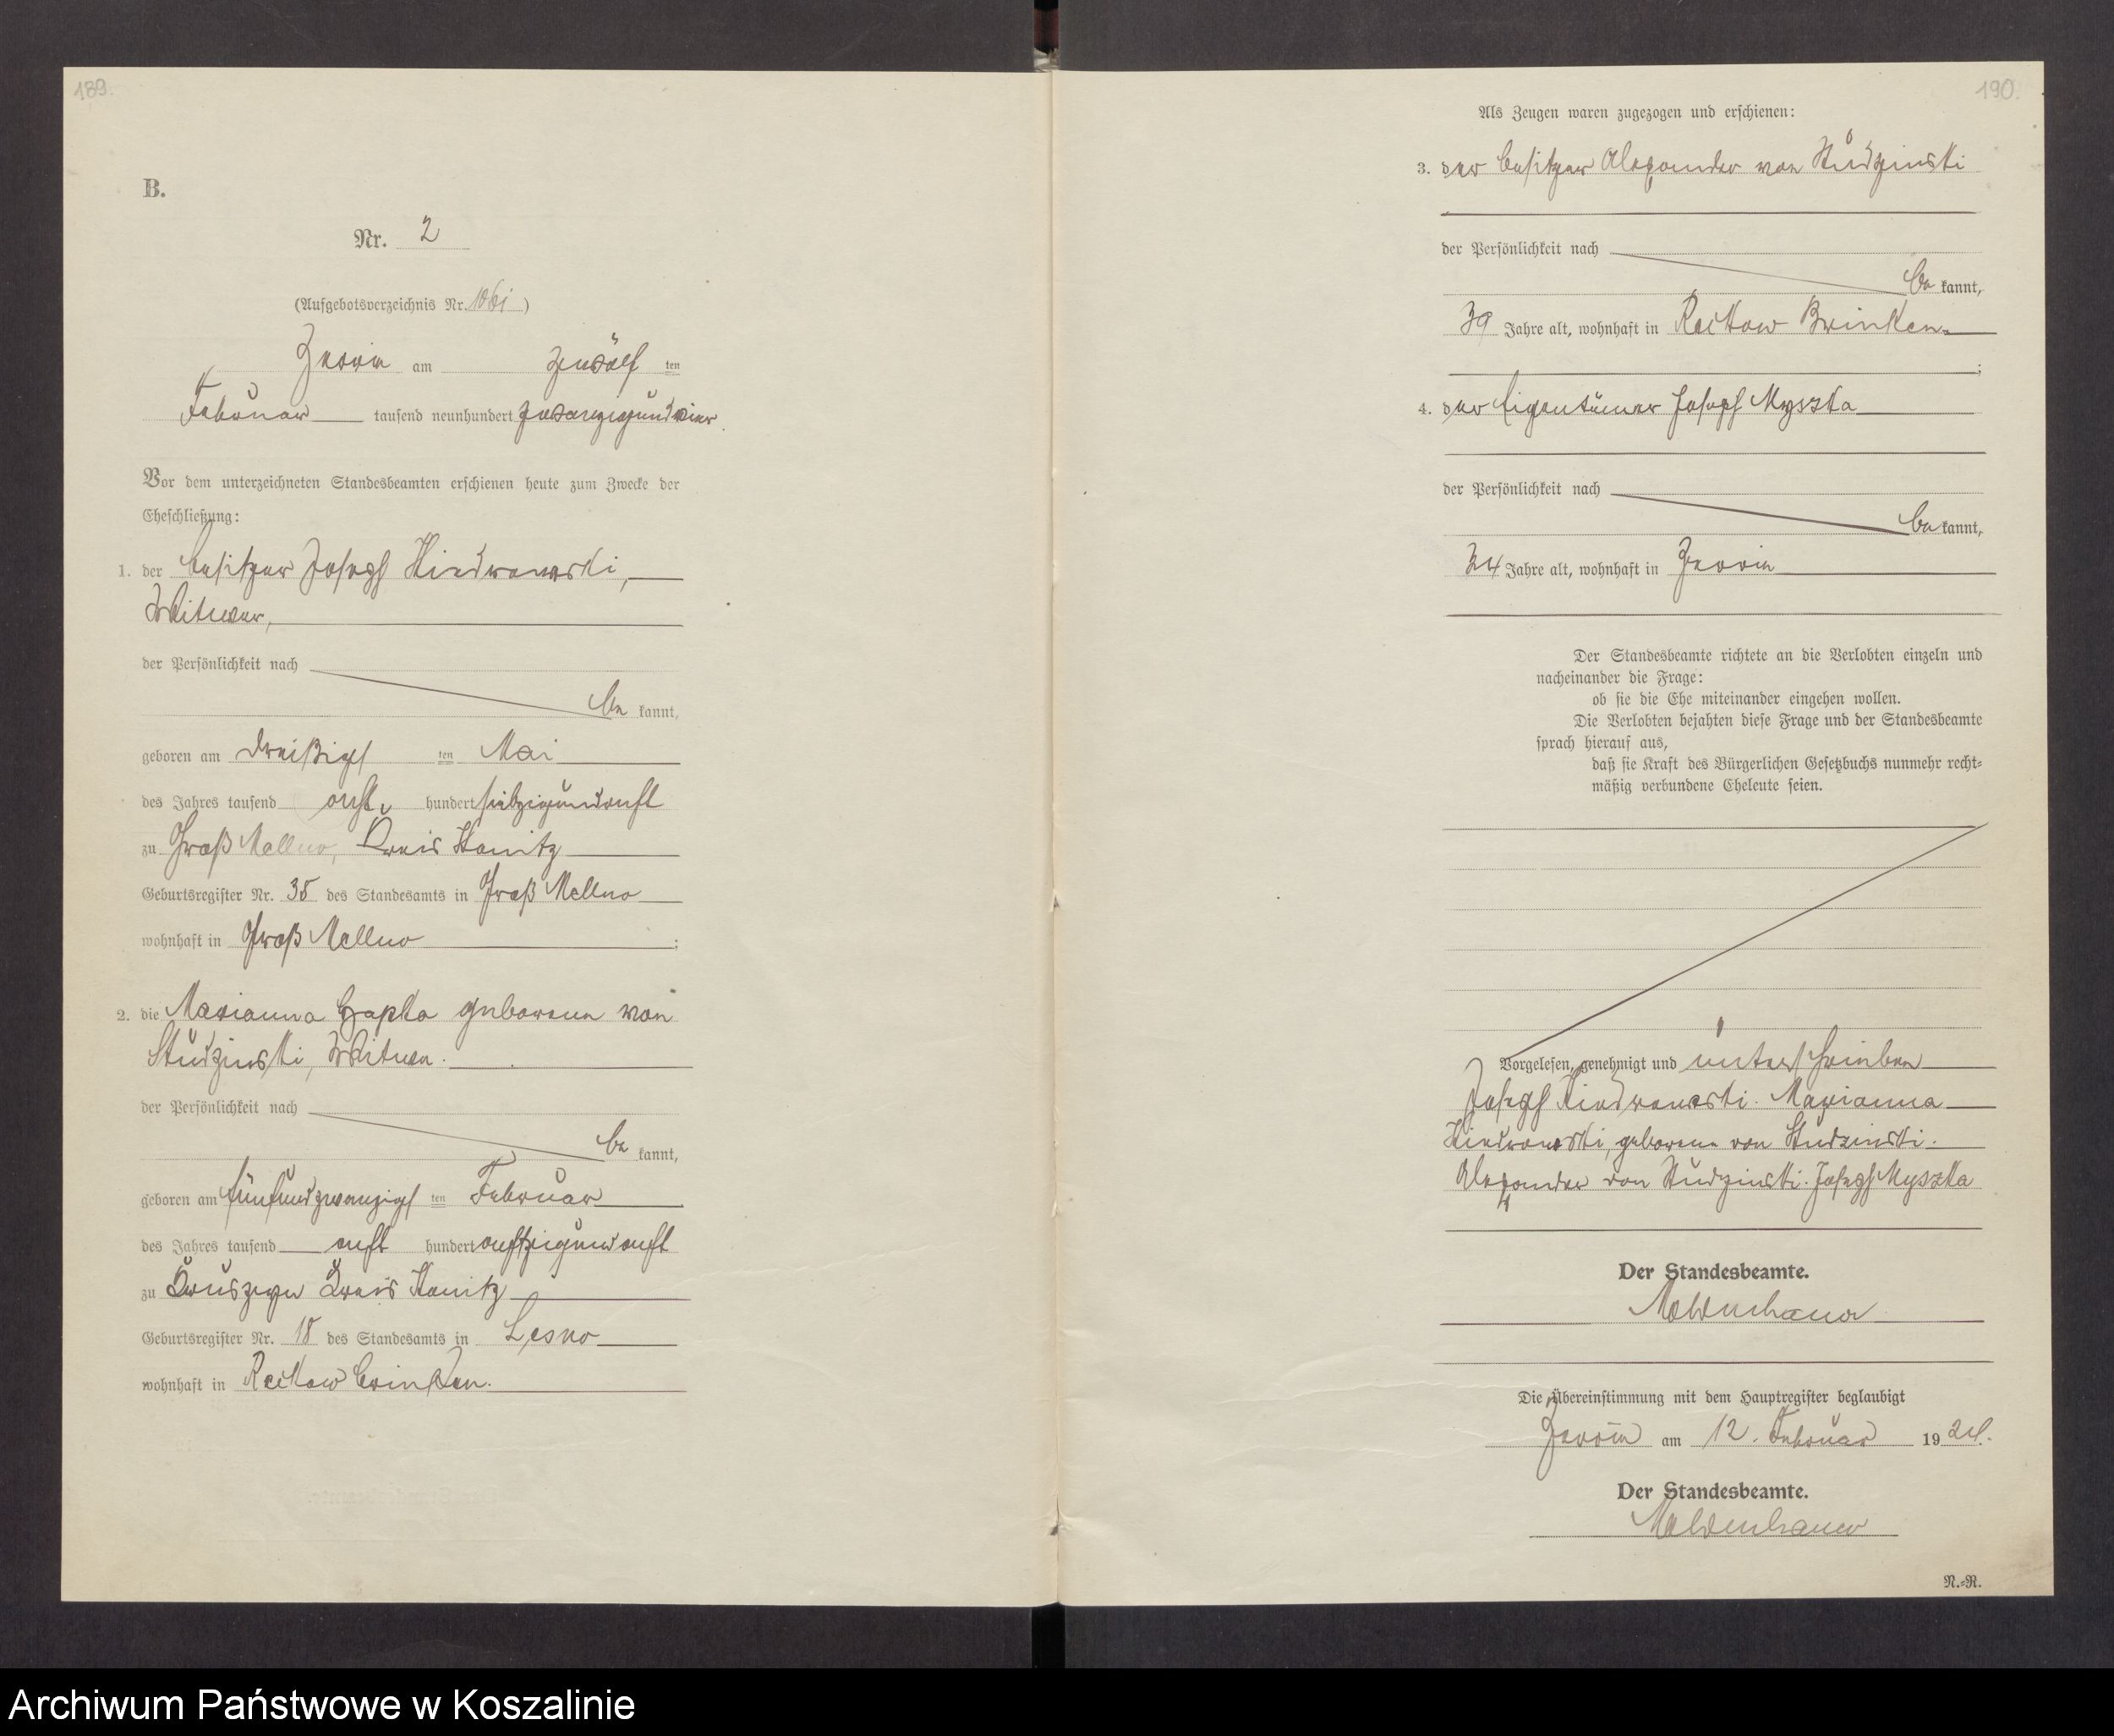 189.
B.
Nr. 2
(Aufgebotsverzeichnis Nr. )
Jerrin am zwölf ten
Februar tausend neunhundert zwanzigundvier.
Vor dem unterzeichneten Standesbeamten erschienen heute zum Zwecke der
Eheschließung:
1. der Besitzer Joseph Kiedrowski,
Witwer,
der Persönlichkeit nach
be kannt,
geboren am dreißigs ten Mai
des Jahres tausend acht hundert siebzigundacht
zu Groß Mellno, Kreis Konitz
Geburtsregister Nr. 35 des Standesamts in Groß Mellno
wohnhaft in Groß Mellno ;
2. die Marianna geborene von
Studzinski, Witwe.
der Persönlichkeit nach
be kannt,
geboren am fünfundzwanzigs ten Februar
des Jahres tausend acht hundert achtzigundacht
zu Kreis Konitz
Geburtsregister Nr. 18 des Standesamts in Lesno
wohnhaft in Reckow Brinken.
190.
Als Zeugen waren zugezogen und erschienen:
3. der Besitzer Alexander von Studzinski
der Persönlichkeit nach
be kannt,
39 Jahre alt, wohnhaft in Reckow Brinken
;
4. der Eigentümer Joseph Myszka
der Persönlichkeit nach
be kannt,
34 Jahre alt, wohnhaft in Jerrin
Der Standesbeamte richtete an die Verlobten einzeln und
nacheinander die Frage:
ob sie die Ehe miteinander eingehen wollen.
Die Verlobten bejahten diese Frage und der Standesbeamte
sprach hierauf aus,
daß sie Kraft des Bürgerlichen Gesetzbuchs nunmehr recht-
mäßig verbundene Eheleute seien.
Vorgelesen, genehmigt und unterschrieben
Joseph Kiedrowski. Marianna
Kiedrowski, geborene von Studzinski.
Alexander von Studzinski. Joseph Myszka
Der Standesbeamte.
Moldenhauer
Die Übereinstimmung mit dem Hauptregister beglaubigt
Jerrin am 12. Februar 1924.
Der Standesbeamte.
Moldenhauer
N.-R.
Archiwum Państwowe w Koszalinie